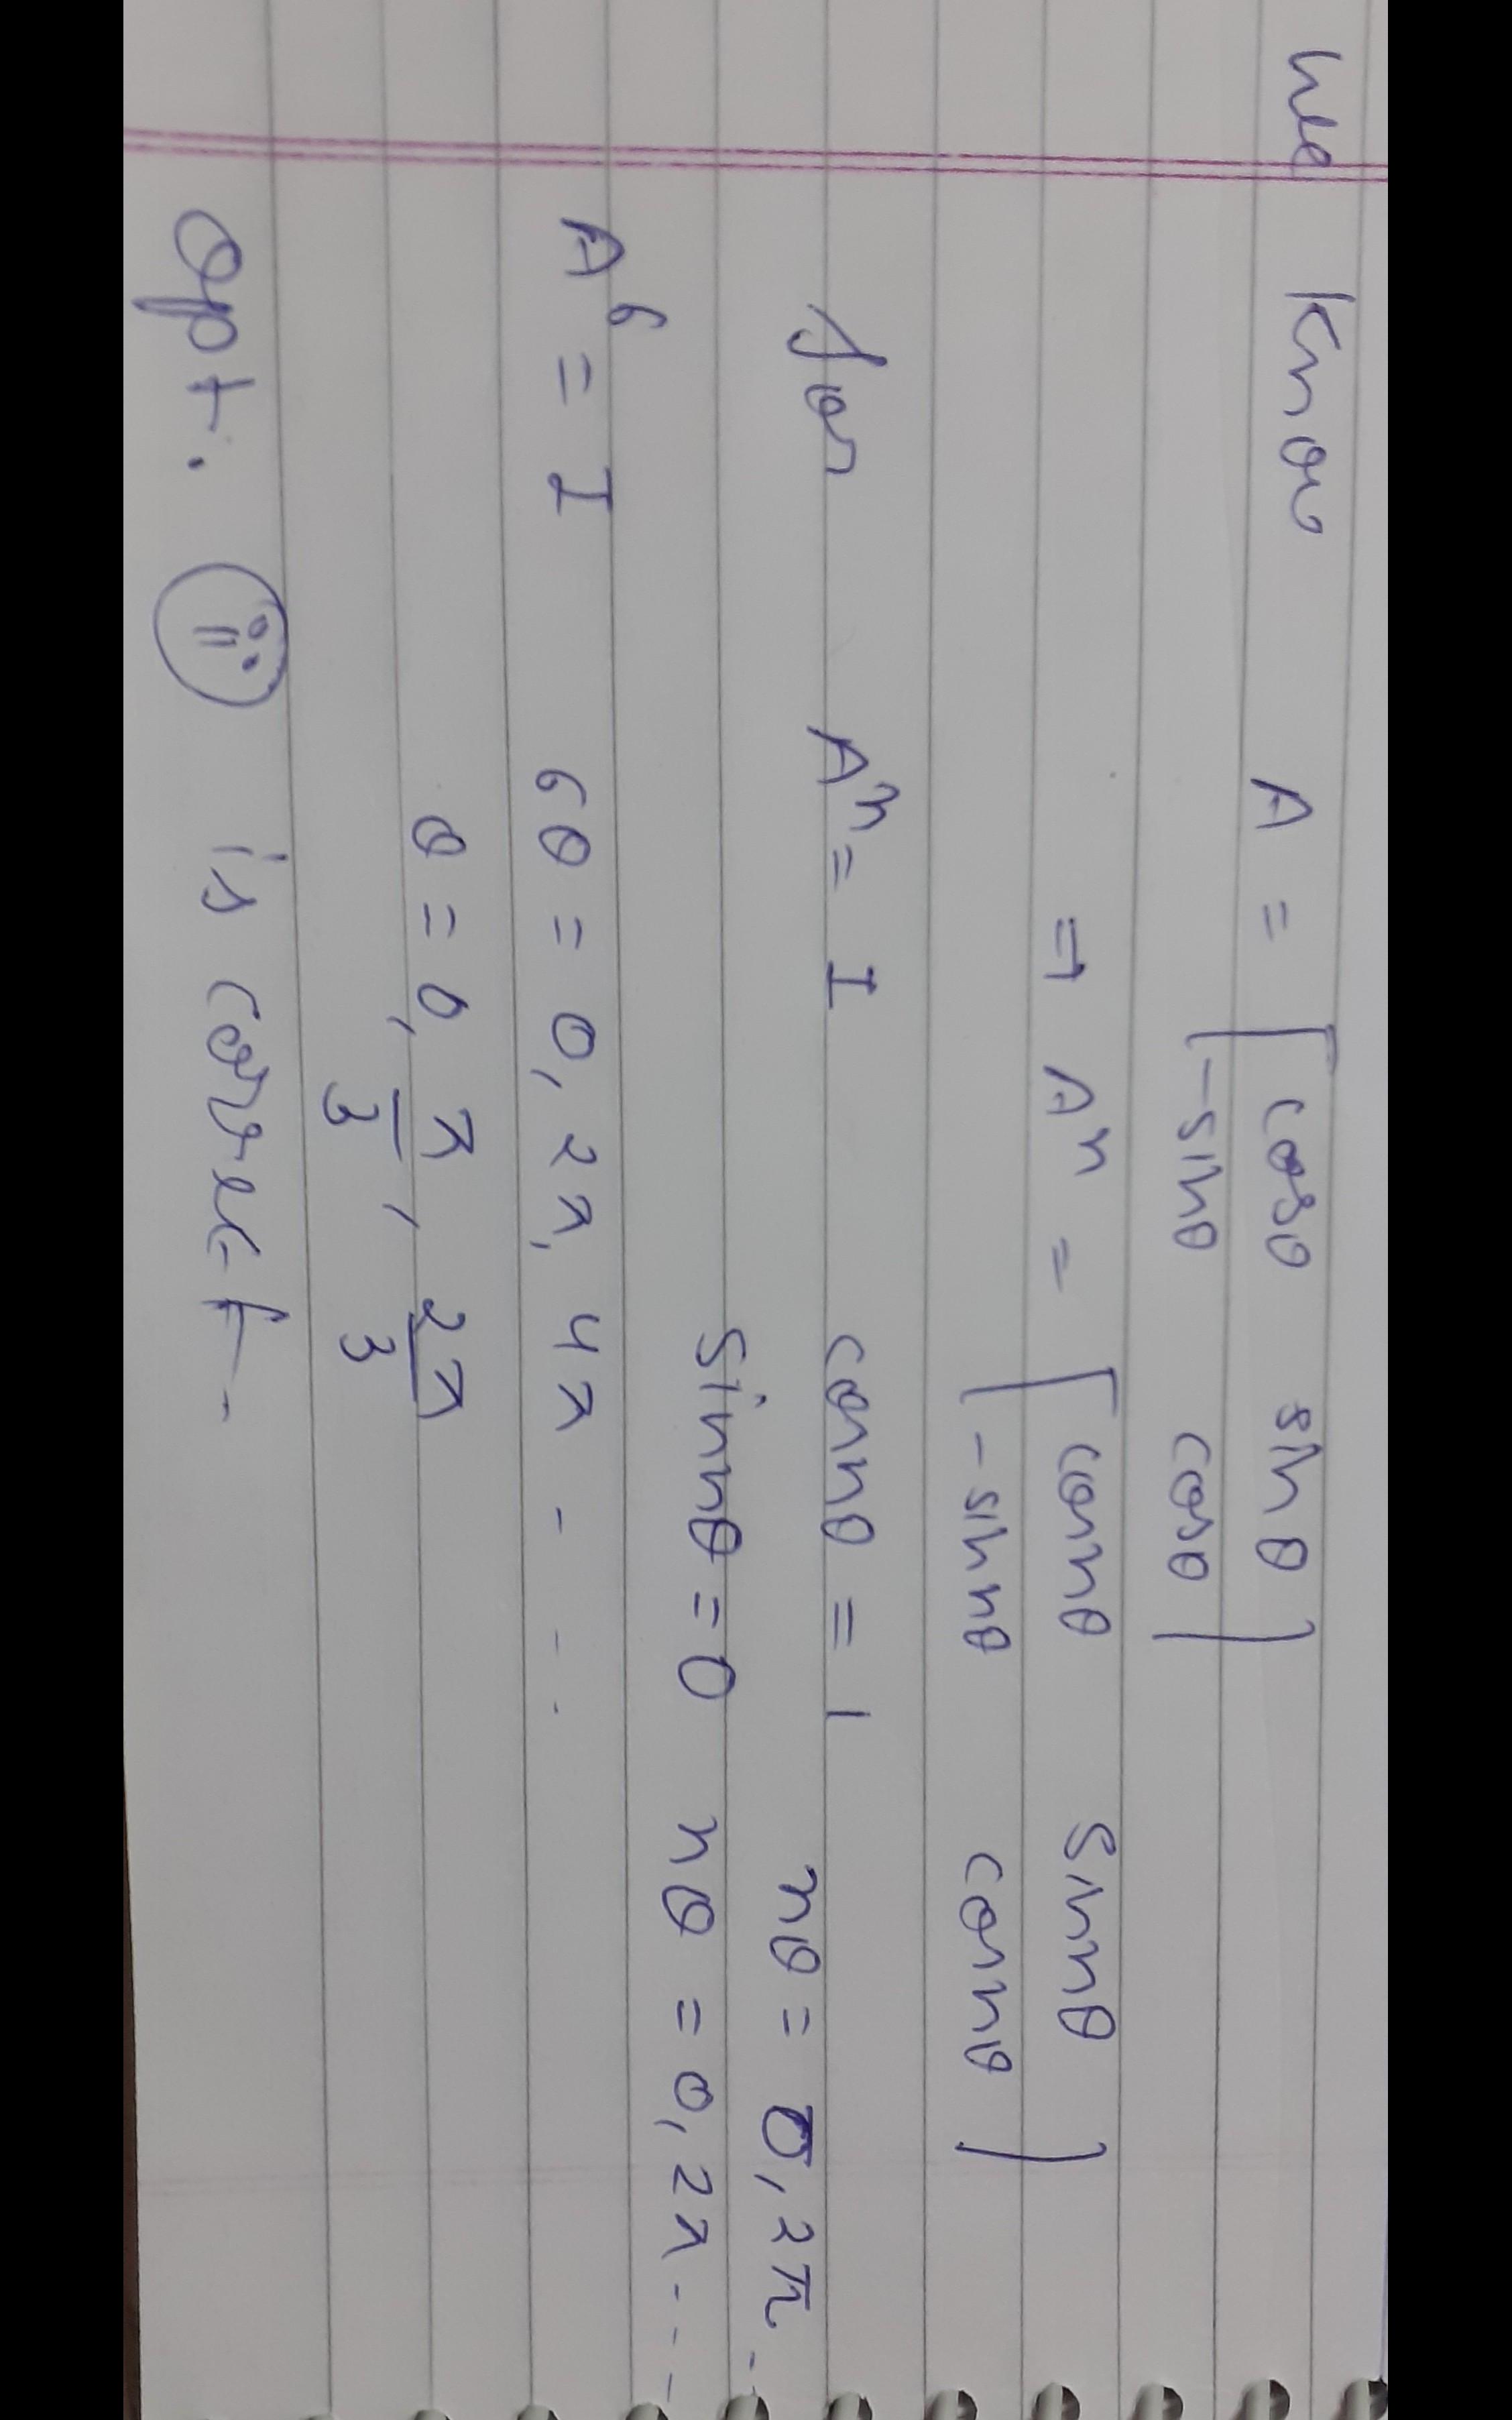 we know A = [cosθ sinθ
-sinθ cosθ]
⇒ Aⁿ = [cosnθ sinnθ
-sinnθ cosnθ]
for Aⁿ = I cosnθ = 1 nθ = 0, 2π --
sinnθ = 0 nθ = 0, 2π - - -
A⁶ = I 6θ = 0, 2π, 4π - - -
θ = 0, π/3, 2π/3
opt. ii is correct -